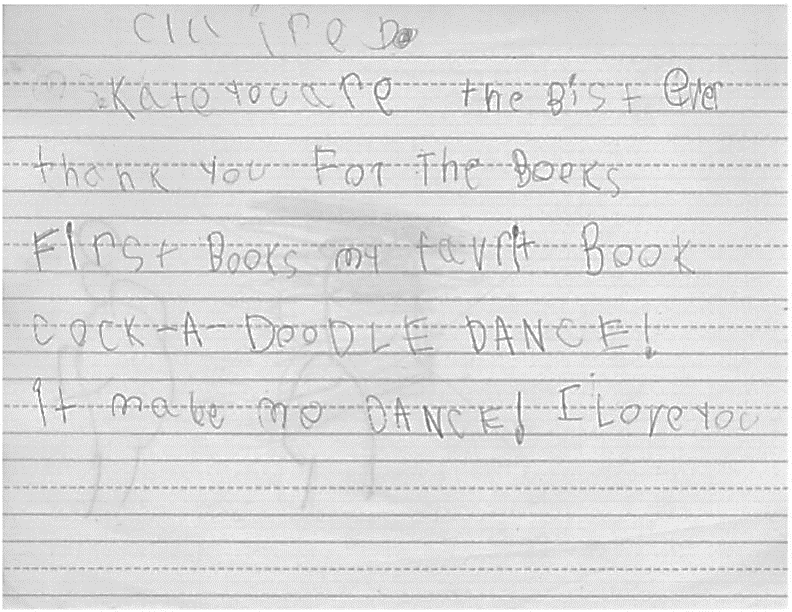 Kato you are the Bist Ever
thank you For The Books
First Books my favrit Book
COCK-A-DOODLE DANCE!
It make me DANCE! I Love you